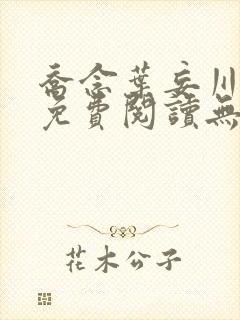 喬念葉妄川
免費閱讀無
花木公子